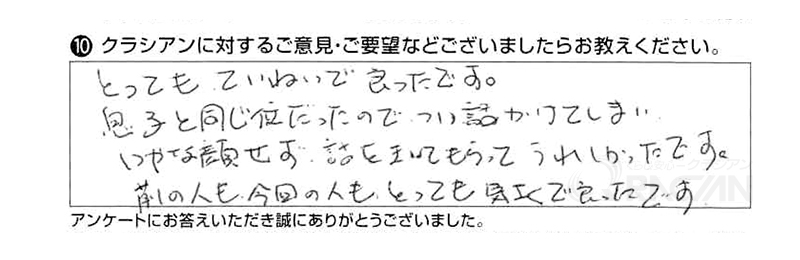 ⑩ クラシアンに対するご意見・ご要望などございましたらお教えください。
とっても ていねいで 良ったです。
息子と同じ位だったので つい話かけてしまい
いやな顔せず 話をきいてもらって うれしかったです。
前の人も、今回の人も、とっても 早くで良ったです
アンケートにお答えいただき誠にありがとうございました。